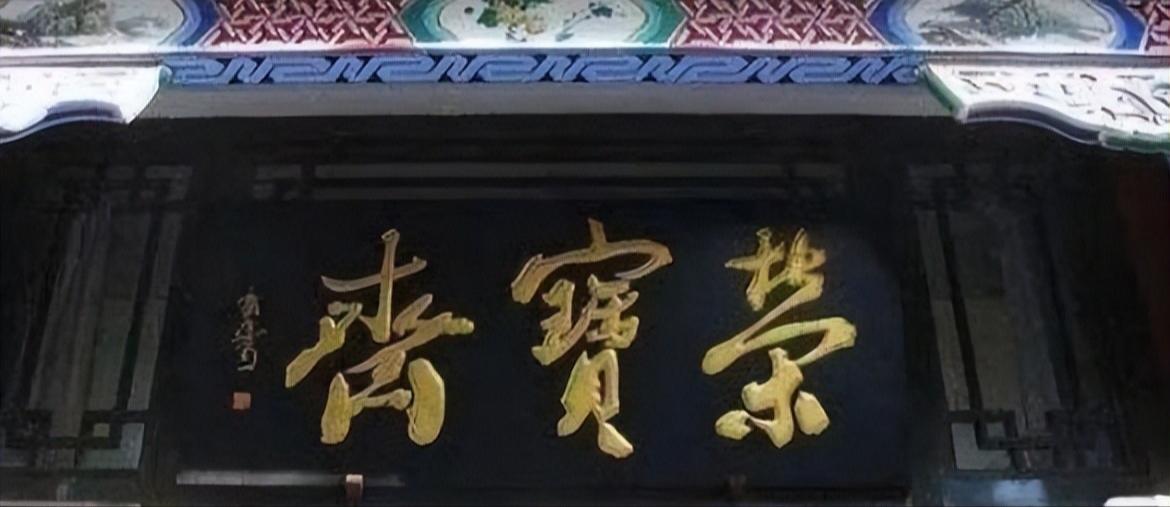 榮寶齋